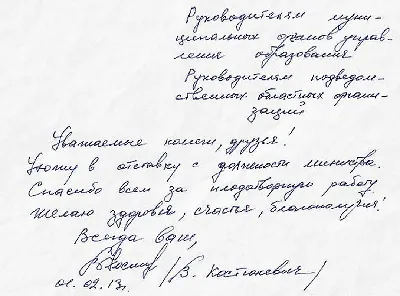 Руководителям муни-
ципальных органов управ-
ления образования
Руководителям подведом-
ственных областных органи-
заций
Уважаемые коллеги, друзья!
Ухожу в отставку с должности министра.
Спасибо всем за плодотворную работу
Желаю здоровья, счастья, благополучия!
Всегда Ваш,
/В. Костюкевич/
01.02.13г.